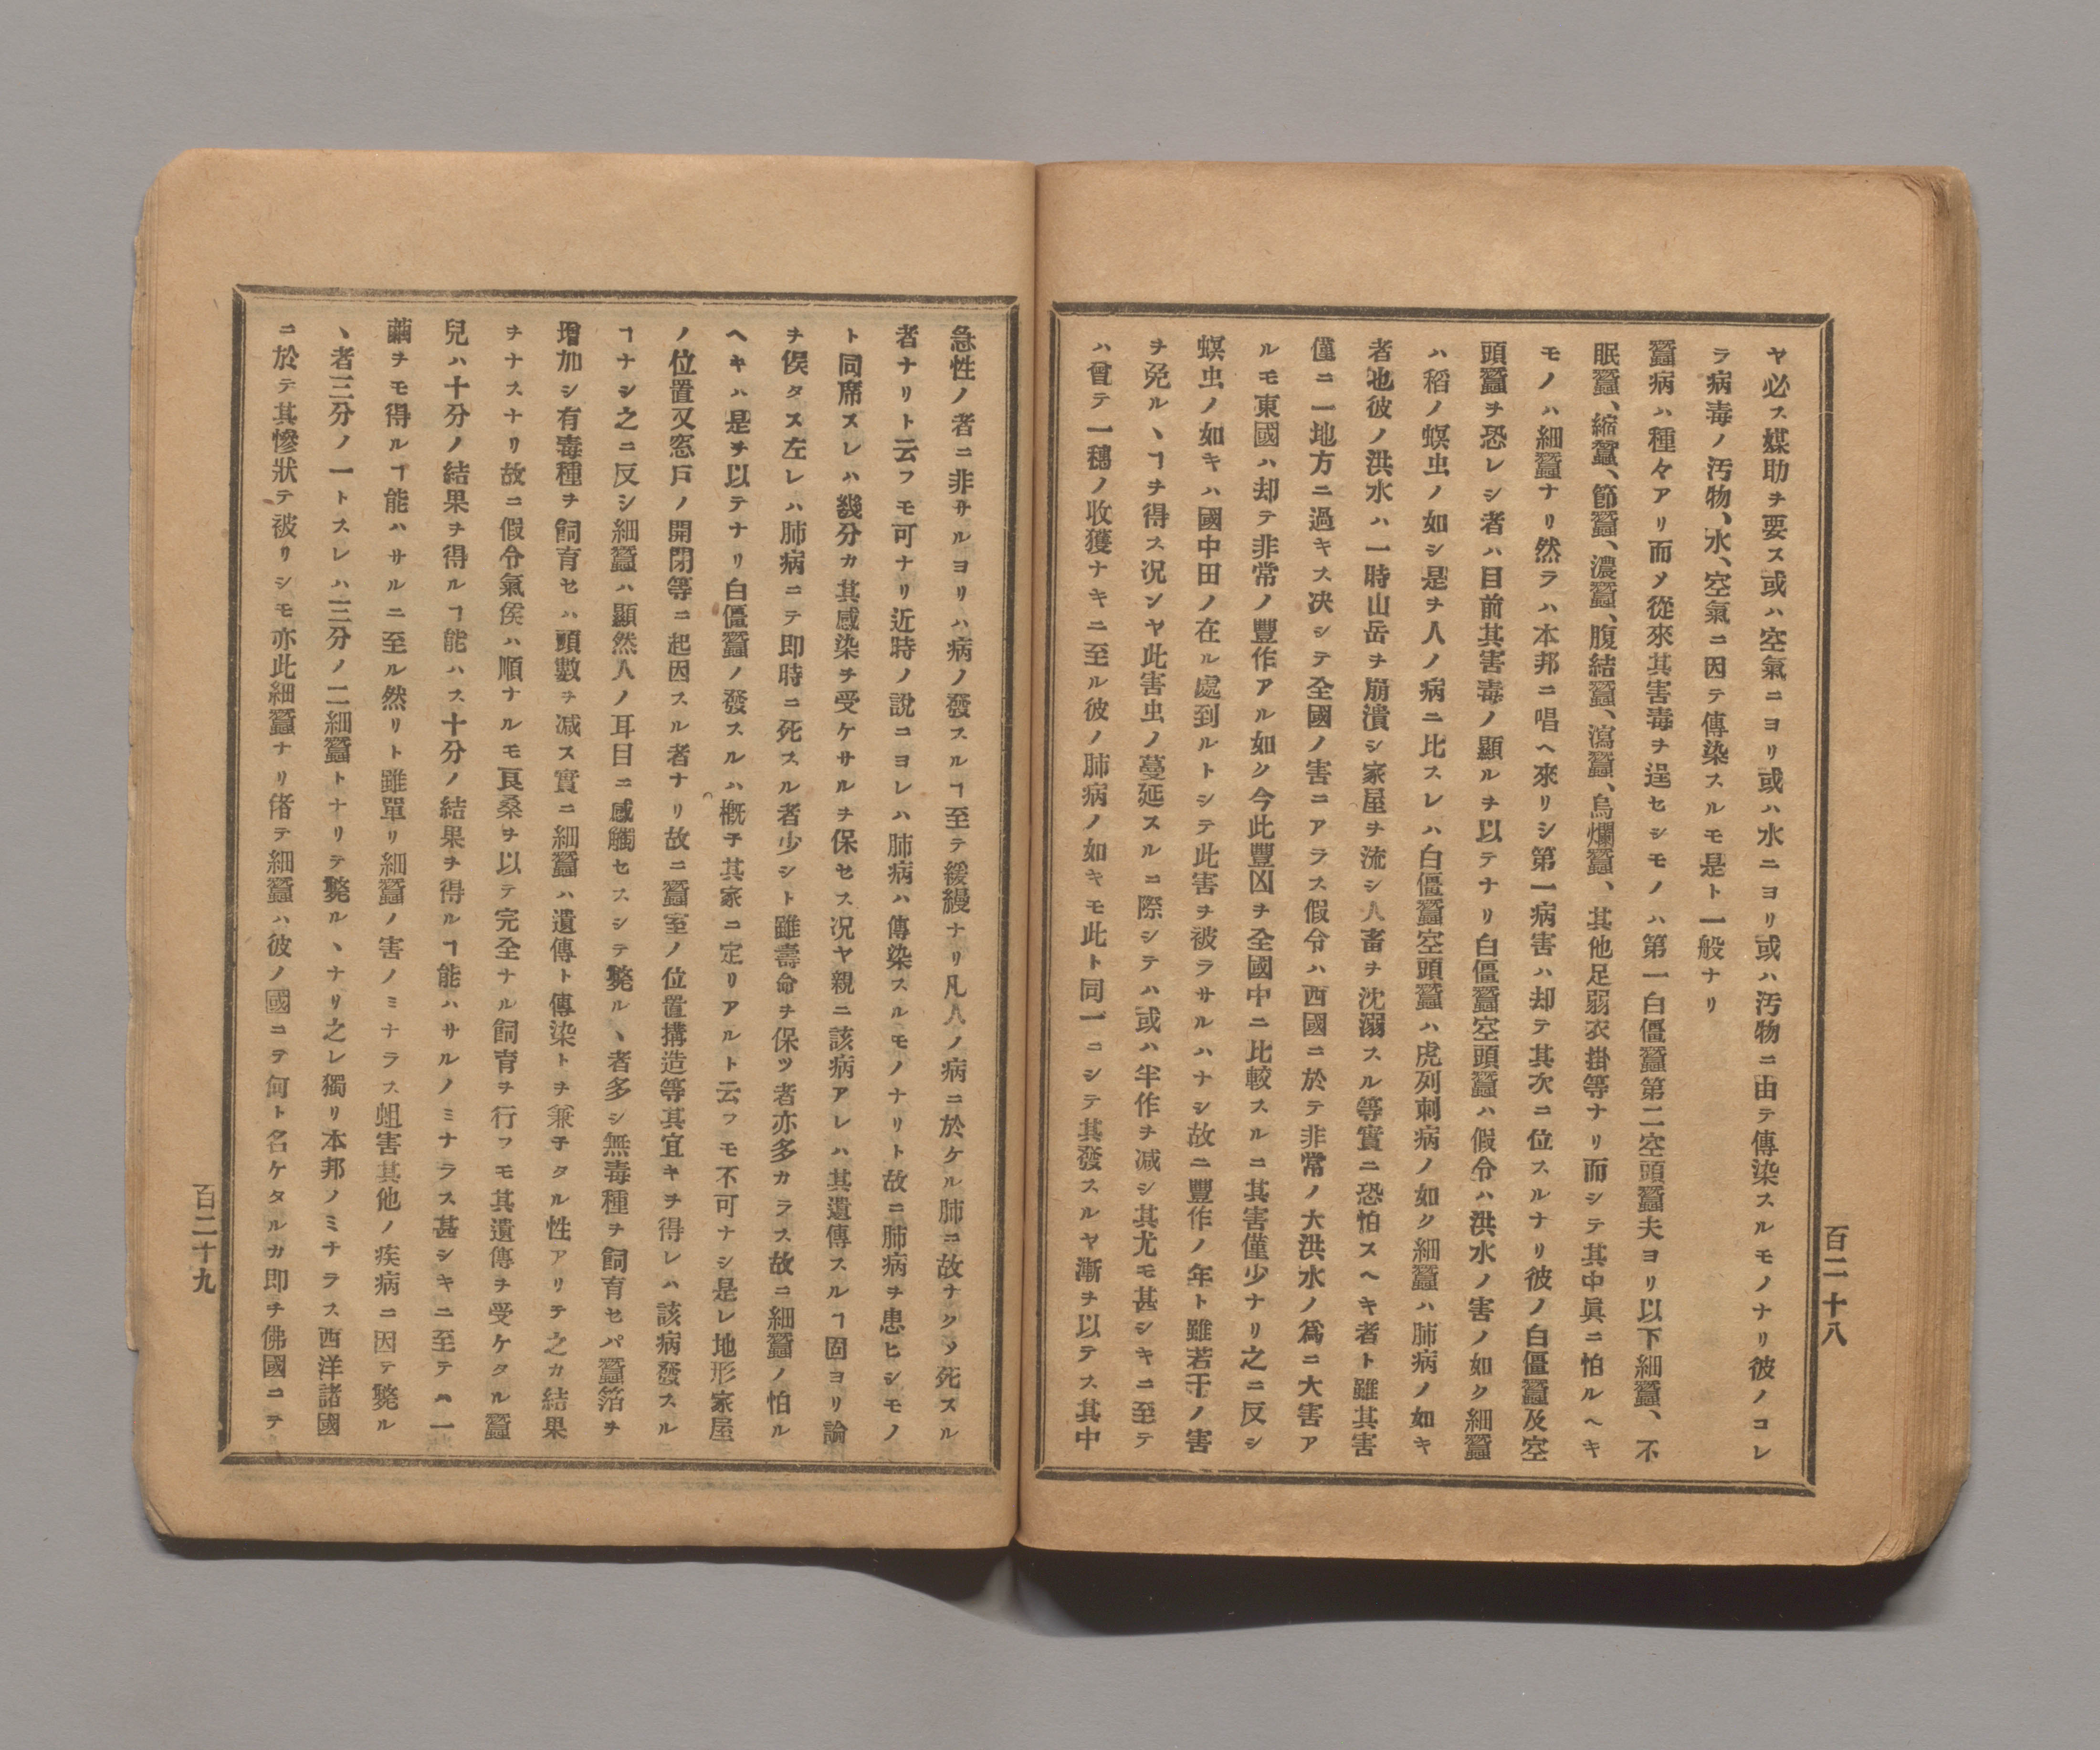 ヤ必ス媒助ヲ要ス或ハ空氣ニヨリ或ハ水ニヨリ或ハ汚物ニ由テ傳染スルモノナリ彼ノコレ
ラ病毒ノ汚物、水、空氣ニ因テ傳染スルモ是ト一般ナリ
蠶病ハ種々アリ而メ從來其害毒ヲ逞セシモノハ第一白僵蠶第二空頭蠶夫ヨリ以下細蠶、不
眠蠶、縮蠶、節蠶、濃蠶、腹結蠶、瀉蠶、烏爛蠶、其他足弱衣掛等ナリ而シテ其中眞ニ怕ルヘキ
モノハ細蠶ナリ然ラハ本邦ニ唱ヘ來リシ第一病害ハ却テ其次ニ位スルナリ彼ノ白僵蠶及空
頭蠶ヲ恐レシ者ハ目前其害毒ノ顯ルヲ以テナリ白僵蠶空頭蠶ハ假令ハ洪水ノ害ノ如ク細蠶
ハ稻ノ螟虫ノ如シ是ヲ人ノ病ニ比スレハ白僵蠶空頭蠶ハ虎列刺病ノ如ク細蠶ハ肺病ノ如キ
者地彼ノ洪水ハ一時山岳ヲ崩潰シ家屋ヲ流シ人畜ヲ沈溺スル等實ニ恐怕スヘキ者ト雖其害
僅ニ一地方ニ過キス决シテ全國ノ害ニアラス假令ハ西國ニ於テ非常ノ大洪水ノ爲ニ大害ア
ルモ東國ハ却テ非常ノ豐作アル如ク今此豐凶ヲ全國中ニ比較スルニ其害僅少ナリ之ニ反シ
螟虫ノ如キハ國中田ノ在ル處到ルトシテ此害ヲ被ラサルハナシ故ニ豐作ノ年ト雖若干ノ害
ヲ免ルヽヿヲ得ス况ンヤ此害虫ノ蔓延スルニ際シテハ或ハ半作ヲ减シ其尤モ甚シキニ至テ
ハ曾テ一穗ノ收獲ナキニ至ル彼ノ肺病ノ如キモ此ト同一ニシテ其發スルヤ漸ヲ以テス其中
百二十八
急性ノ者ニ非サルヨリハ病ノ發スルヿ至テ緩縵ナリ凡人ノ病ニ於ケル肺ニ故ナクメ死スル
者ナリト云フモ可ナリ近時ノ說ニヨレハ肺病ハ傳染スルモノナリト故ニ肺病ヲ患ヒシモノ
ト同席スレハ幾分カ其感染ヲ受ケサルヲ保セス况ヤ親ニ該病アレハ其遺傳スルヿ固ヨリ論
ヲ俟タス左レハ肺病ニテ即時ニ死スル者少シト雖壽命ヲ保ツ者亦多カラス故ニ細蠶ノ怕ル
ヘキハ是ヲ以テナリ白僵蠶ノ發スルハ槪子其家ニ定リアルト云フモ不可ナシ是レ地形家屋
ノ位置又窓戸ノ開閉等ニ起因スル者ナリ故ニ蠶室ノ位置搆造等其宜キヲ得レハ該病發スル
ヿナシ之ニ反シ細蠶ハ顯然人ノ耳目ニ感觸セスシテ斃ルヽ者多シ無毒種ヲ飼育セバ蠶箔ヲ
增加シ有毒種ヲ飼育セハ頭數ヲ减ス實ニ細蠶ハ遺傳ト傳染トヲ兼子タル性アリテ之カ結果
ヲナスナリ故ニ假令氣侯ハ順ナルモ良桑ヲ以テ完全ナル飼育ヲ行フモ其遺傳ヲ受ケタル蠶
兒ハ十分ノ結果ヲ得ルヿ能ハス十分ノ結果ヲ得ルヿ能ハサルノミナラス甚シキニ至テハ一
繭ヲモ得ルヿ能ハサルニ至ル然リト雖單リ細蠶ノ害ノミナラス蛆害其他ノ疾病ニ因テ斃ル
ヽ者三分ノ一トスレハ三分ノ二細蠶トナリテ斃ルヽナリ之レ獨リ本邦ノミナラス西洋諸國
ニ於テ其慘狀テ被リシモ亦此細蠶ナリ偖テ細蠶ハ彼ノ國ニテ何ト名ケタルカ即チ佛國ニテ
百二十九